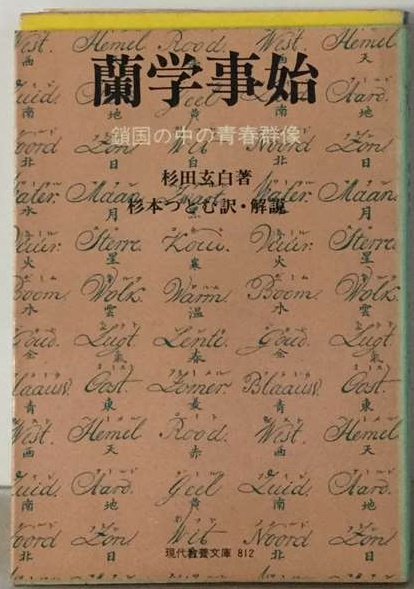 West. Hemel Rood. West. Hemel
西 天 西 天
蘭学事始
Zuid. Aard. Geel Zuid. Aard.
南 地 黄 南 地
鎖国の中の青春群像
Noord Zon Wit Noord Zon
北 日 白 北 日
杉田玄白著
Water. Maan Water. Maan
水 月 水 月
杉本つとむ訳・解説
Vuur. Sterre. Kouw. Vuur. Sterre.
火 星 寒 火 星
Boom. Wolk. Warm. Boom. Wolk.
木 雲 温 木 雲
Goud. Lugt. Lente. Goud. Lugt.
金 氣 春 金 氣
Blaauw. Oost. Zomer. Blaauw. Oost.
青 東 夏 青 東
West. Hemel Rood. West. Hemel
西 天 赤 西 天
Zuid. Aard. Geel Zuid. Aard.
南 地 黄 南 地
Noord Zon Wit Noord Zon
北 日 北 日
現代教養文庫 812